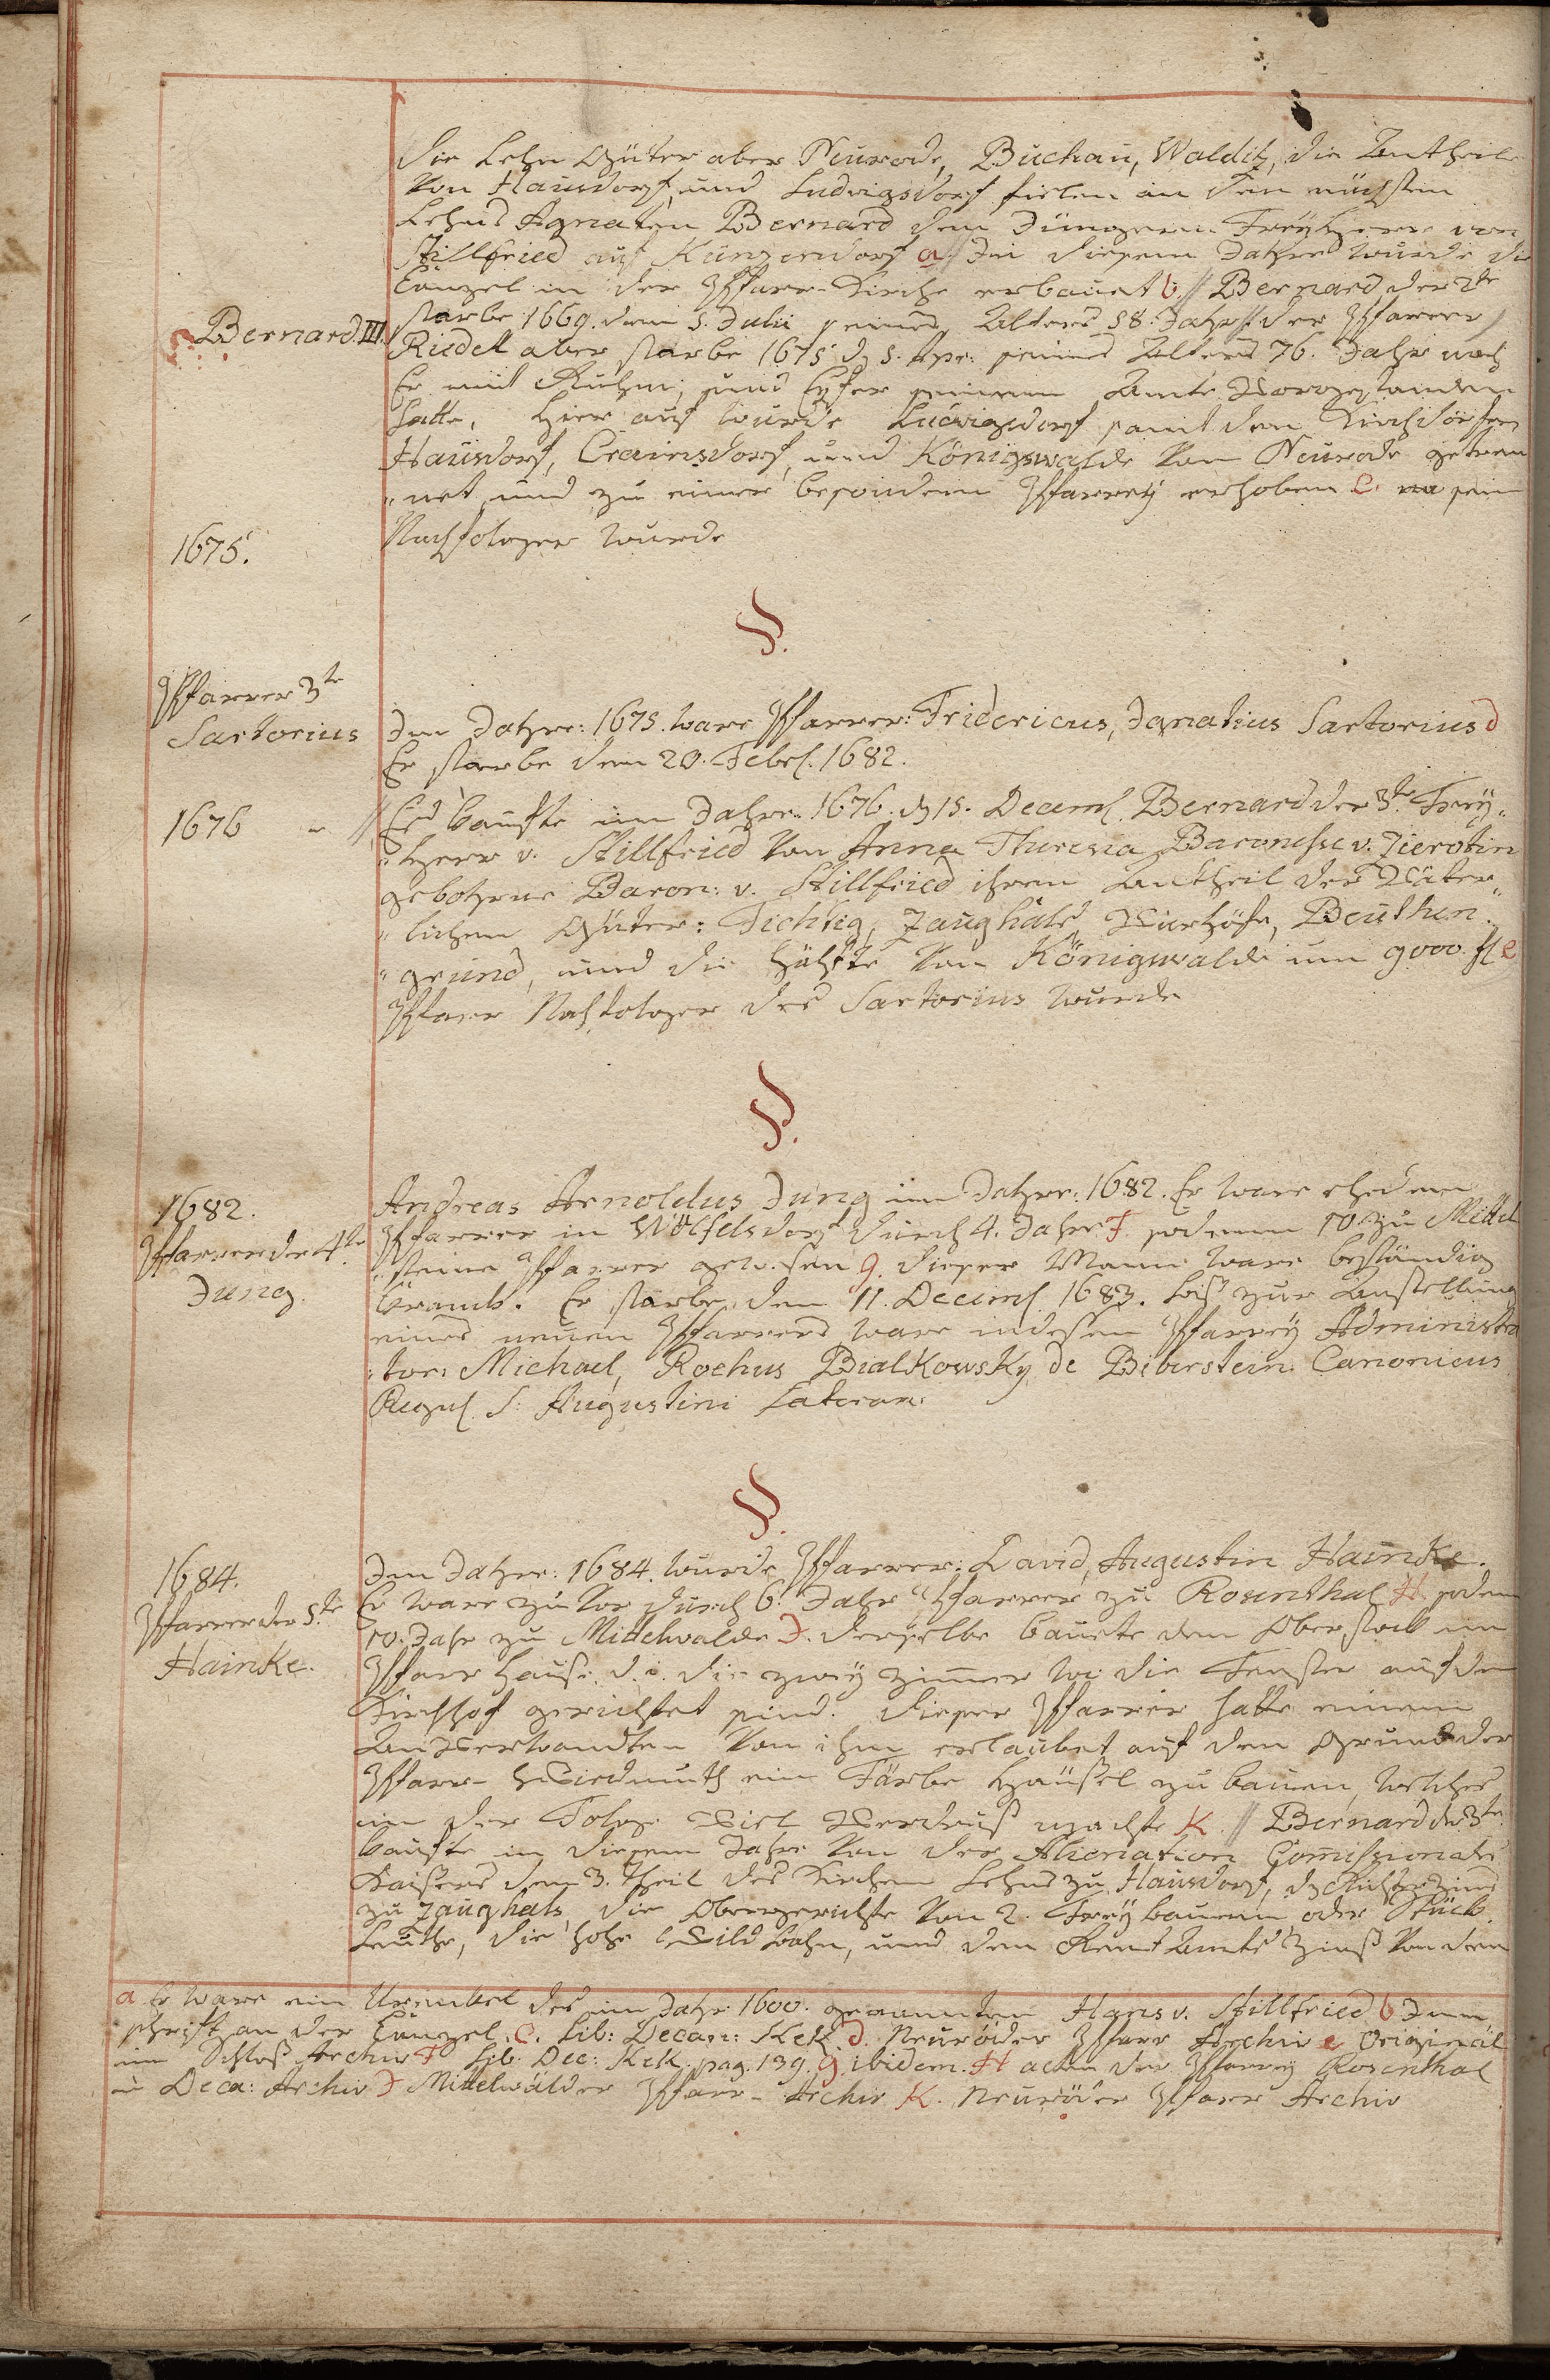 Die Lehn Güter aber Neurode, Buchau, Walditz, die Antheile
von Hausdorf, und Ludwigsdorf fielen an den nächsten
Lehns Agnaten Bernard den Jüngeren Freyherr von
Stillfried auf Kunzendorf a // In diesem Jahre wurde die
Canzel in der Pfarr-Kirche erbauet b. // Bernard der 2te
Bernard III.
starbe 1669. den 5. Julii seines Alters 58. Jahr // der Pfarrer
Rudell aber starbe 1675 d 5. Apr: seines Alters 76. Jahr nach
Er mit Ruhm, und Eyfer seinem Amte vorgestanden
hatte. Hier auf wurde Ludwigsdorf samt den Kirchdörfern
Hausdorf, Crainsdorf, und Königswalde von Neurode getren
"net und zu einer besondern Pfarrey erhoben C. sein
1675.
Nachfolger wurde
§.
Pfarrer 3te
Sartorius
Im Jahre: 1675. ware Pfarrer: Fridericus, Ignatius Sartorius d
Er starbe den 20. Febr. 1682.
1676 //
Es kaufte im Jahre 1676. d 15. Decem. Bernard der 3te Frey"
"Herr v. Stillfried von Anna Theresia Baronesse v. Zierotin
gebohrne Baron: v. Stillfried ihren Antheil der Väter"
"lichen Güter: Fichtig, Zaughals, Vierhöfe, Beuthen"
"grund, und die Hälfte von Königswalde um 9000. fl e
Pfarr Nachfolger des Sartorius wurde
§.
1682.
Pfarrer der 4te
Jung.
Andreas Arnoldus Jung im Jahre: 1682. Er ware ehedem
Pfarrer in Wölfelsdorf durch 4. Jahr F. sodenn 10. zu Mittel
"steine Pfarrer gewesen g. dieser Mann ware beständig
krank. Er starbe den 11. Decem. 1683. biß zur Anstellung
eines neuen Pfarrers ware indessen Pfarrey Administra
:tor: Michael, Rochus Bialkowsky de Biberstein Canonicus
Regul. S: Augustini Lateran:
§.
1684.
Pfarrer der 5te
Hainke.
Im Jahre: 1684. wurde Pfarrer: David, Augustin Hainke.
Er ware zu vor durch 6. Jahr Pfarrer zu Rosenthal H. sodenn
10. Jahr zu Mittelwalde J. derselbe bauete den Oberstock im
Pfarr Hause. d. i. die zwey Zimmer wo die Fenster auf den
Kirchhof gerichtet sind. dieser Pfarrer hatte einem
Anverwandten von ihm erlaubet auf den Grund der
Pfarr-Wiedmuth ein Färbe Häußel zu bauen, welches
in der Folge viel Verdruß machte K. // Bernard der 3te
kaufte in diesem Jahre von der Alienation Com̃issionale
Kaisers den 3. Theil des Kirchen Lehns zu Hausdorf,
zu Zaughals, die Obergerichte von 2. Freybauern oder Stück
Leuthe, die hohe Wild bahn, und den Rent Amts Zinß von dem
a Er ware ein Urenkel des im Jahr 1600. genannten Hans v. Stillfried b Inn
schrift an der Canzel. C. Lib: Decan: KeK. d. Neuröder Pfarr Archiv e Original
im Schloß Archiv F Lib: Dec: KeK. pag. 139. g. ibidem. H acten der Pfarrey Rosenthal
in Deca: Archiv J Mittelwälder Pfarr-Archiv K. Neuröder Pfarr Archiv